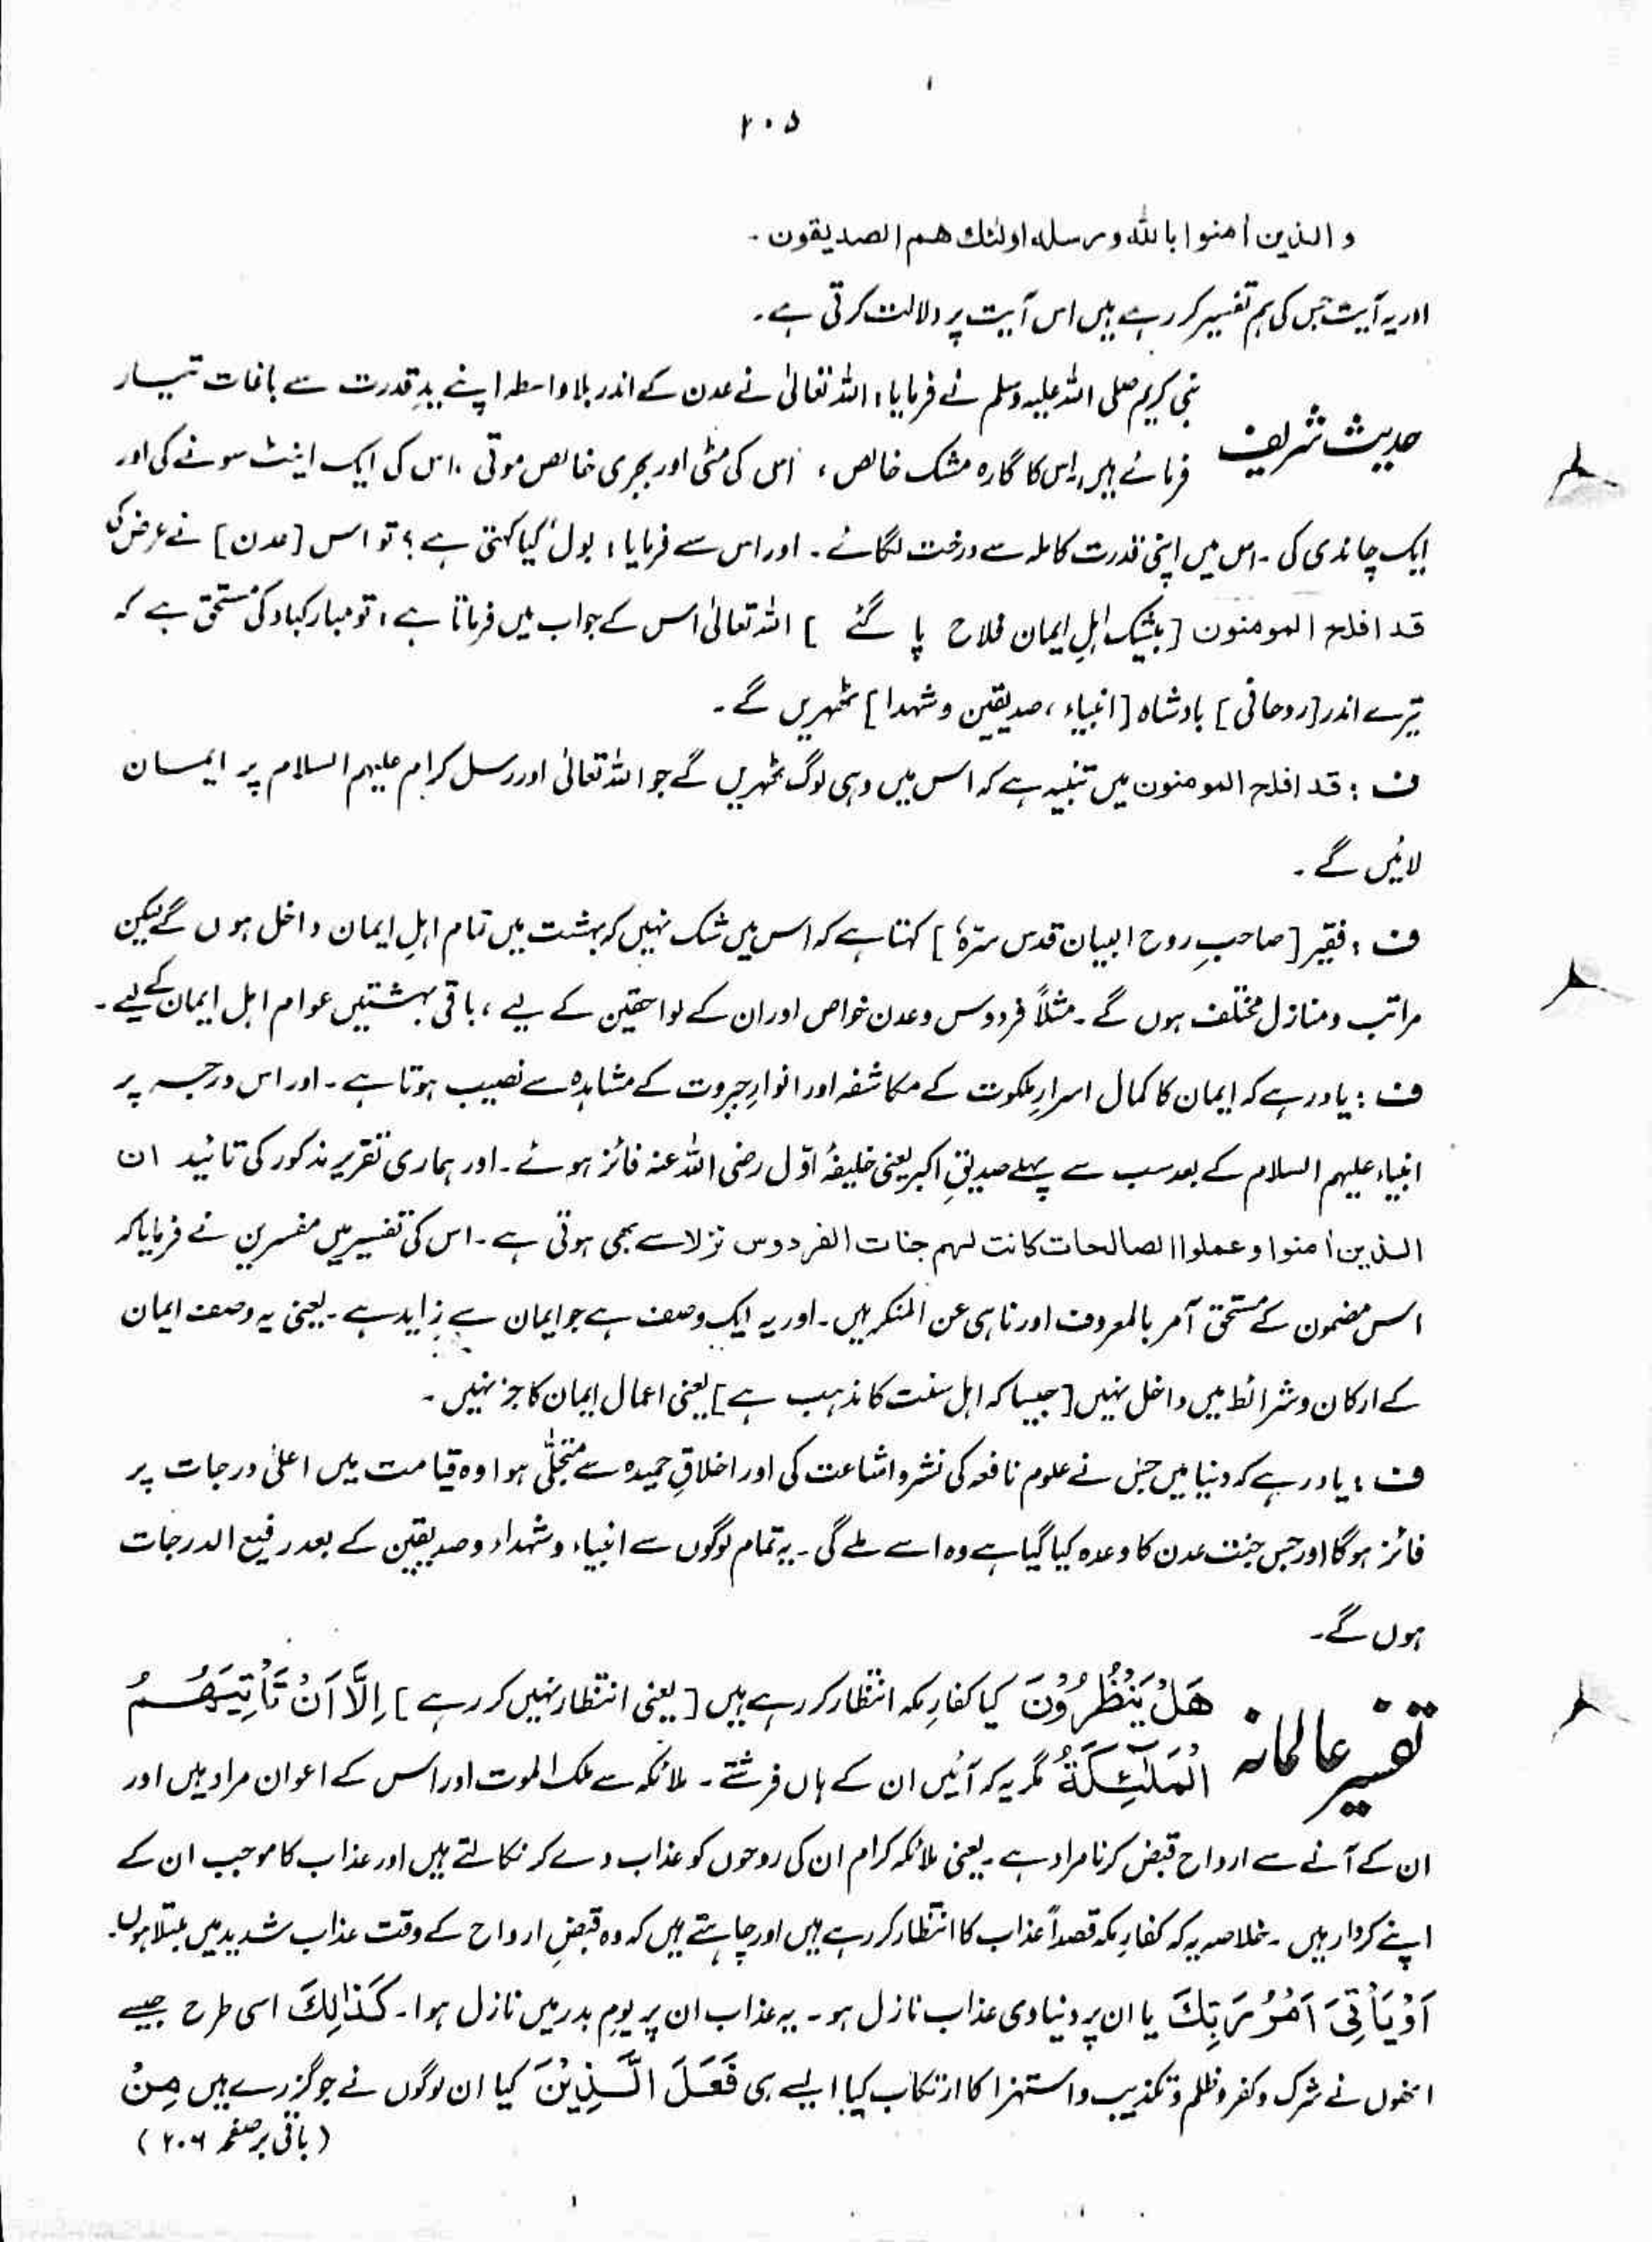 ۲۰۵
والذین اٰمنوا باللّٰہ ورسلہ اولئک ھم الصدیقون ۔
اور یہ آیت جس کی ہم تفسیر کر رہے ہیں اس آیت پر دلالت کرتی ہے۔
حدیث شریف
نبی کریم صلی اللہ علیہ وسلم نے فرمایا: اللہ تعالیٰ نے عدن کے اندر بلا واسطہ اپنے یدِ قدرت سے باغات تیار
فرمائے ہیں، اس کا گارہ مشک خالص، اس کی مٹی اور بجری خالص موتی، اس کی ایک اینٹ سونے کی اور
ایک چاندی کی۔ اس میں اپنی قدرت کاملہ سے درخت لگائے۔ اور اس سے فرمایا: بول کیا کہتی ہے؟ تو اس [عدن] نے عرض کی
قد افلح المومنون [بیشک اہلِ ایمان فلاح پا گئے] اللہ تعالیٰ اس کے جواب میں فرماتا ہے: تو مبارکباد کی مستحق ہے کہ
تیرے اندر [روحانی] بادشاہ [انبیاء، صدیقین و شہدا] ٹھہریں گے۔
ف: قد افلح المومنون میں تنبیہ ہے کہ اس میں وہی لوگ ٹھہریں گے جو اللہ تعالیٰ اور رسل کرام علیہم السلام پر ایمان
لائیں گے۔
ف: فقیر [صاحبِ روح البیان قدس سترہٗ] کہتا ہے کہ اس میں شک نہیں کہ بہشت میں تمام اہلِ ایمان داخل ہوں گے لیکن
مراتب و منازل مختلف ہوں گے۔ مثلاً فردوس و عدن خواص اور ان کے لواحقین کے لیے، باقی بہشتیں عوام اہل ایمان کے لیے۔
ف: یاد رہے کہ ایمان کا کمال اسرارِ ملکوت کے مکاشفہ اور انوارِ جبروت کے مشاہدہ سے نصیب ہوتا ہے۔ اور اس درجہ پر
انبیاء علیہم السلام کے بعد سب سے پہلے صدیقِ اکبر یعنی خلیفۂ اوّل رضی اللہ عنہ فائز ہوئے۔ اور ہماری تقریر مذکور کی تائید ان
الذین اٰمنوا وعملوا الصالحات کانت لہم جنات الفردوس نزلا سے بھی ہوتی ہے۔ اس کی تفسیر میں مفسرین نے فرمایا کہ
اس مضمون کے مستحق آمر بالمعروف اور ناہی عن المنکر ہیں۔ اور یہ ایک وصف ہے جو ایمان سے زاید ہے۔ یعنی یہ وصف ایمان
کے ارکان و شرائط میں داخل نہیں [جیسا کہ اہل سنت کا مذہب ہے] یعنی اعمال ایمان کا جز نہیں۔
ف: یاد رہے کہ دنیا میں جس نے علوم نافعہ کی نشر و اشاعت کی اور اخلاقِ حمیدہ سے متجلّٰی ہوا وہ قیامت میں اعلیٰ درجات پر
فائز ہوگا اور جس جنت عدن کا وعدہ کیا گیا ہے وہ اسے ملے گی۔ یہ تمام لوگوں سے انبیاء و شہداء و صدیقین کے بعد رفیع الدرجات
ہوں گے۔
تفسیر عالمانہ
هَلْ یَنْظُرُوْنَ کیا کفارِ مکہ انتظار کر رہے ہیں [یعنی انتظار نہیں کر رہے] اِلَّآ اَنْ تَأْتِیَہُمُ
الْمَلٰٓئِکَۃُ مگر یہ کہ آئیں ان کے ہاں فرشتے۔ ملائکہ سے ملک الموت اور اس کے اعوان مراد ہیں اور
ان کے آنے سے ارواح قبض کرنا مراد ہے۔ یعنی ملائکہ کرام ان کی روحوں کو عذاب دے کر نکالتے ہیں اور عذاب کا موجب ان کے
اپنے کردار ہیں۔ خلاصہ یہ کہ کفارِ مکہ قصداً عذاب کا انتظار کر رہے ہیں اور چاہتے ہیں کہ وہ قبضِ ارواح کے وقت عذاب شدید میں مبتلا ہوں۔
اَوْ یَأْتِیَ اَمْرُ رَبِّکَ یا ان پر دنیاوی عذاب نازل ہو۔ یہ عذاب ان پر یوم بدر میں نازل ہوا۔ کَذٰلِکَ اسی طرح جیسے
انھوں نے شرک و کفر و ظلم و تکذیب و استہزا کا ارتکاب کیا ایسے ہی فَعَلَ الَّذِیْنَ کیا ان لوگوں نے جو گزرے ہیں مِنْ
(باقی بر صفحہ ۲۰۶)